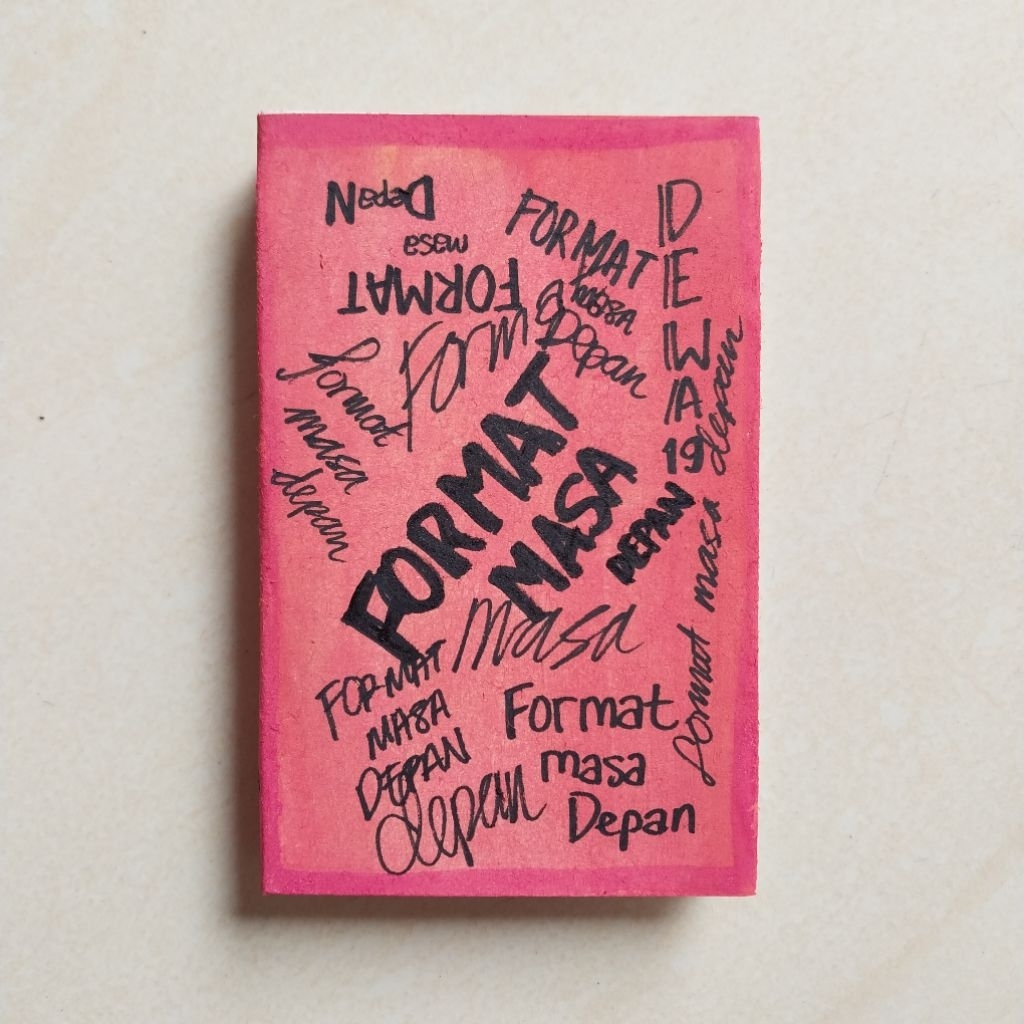 DepaN
masa
FORMAT
FORMAT
masa
Depan
DEWA
19
Forma
format
masa
depan
FORMAT
MASA
DEPAN
format masa depan
masa
depan
FORMAT
MASA
DEPAN
Format
masa
Depan